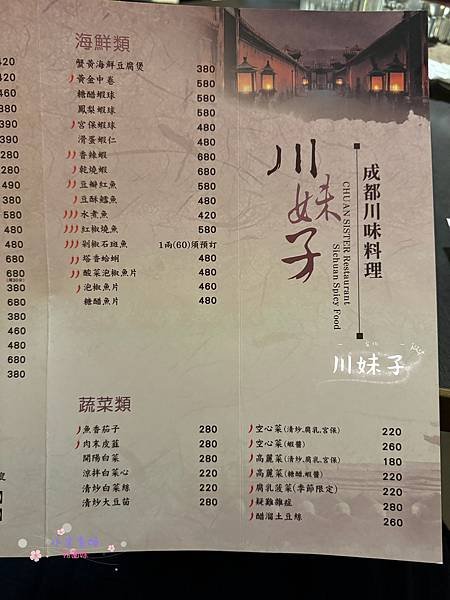 海鮮類
蟹黃海鮮豆腐煲 380
黃金中卷 580
糖醋蝦球 580
鳳梨蝦球 580
宮保蝦球 480
滑蛋蝦仁 480
香辣蝦 580
乾燒蝦 580
豆瓣紅魚 580
豆酥鱈魚 480
水煮魚 420
紅椒燒魚 580
剁椒石斑魚 1兩(60)須預訂
塔香蛤蜊 480
酸菜泡椒魚片 480
泡椒魚片 460
糖醋魚片 480
蔬菜類
魚香茄子 280
肉末皮蛋 280
開陽白菜 220
涼拌白菜心 220
清炒白菜絲 220
清炒大豆苗 280
空心菜(清炒.腐乳.宮保) 220
空心菜(蝦醬) 260
高麗菜(清炒.腐乳.宮保) 180
高麗菜(糖醋.蝦醬) 220
腐乳菠菜(季節限定) 220
疑難雜症 280
醋溜土豆絲 260
川妹子
成都川味料理
CHUAN SISTER Restaurant
Sichuan Spicy Food
川妹子
420
420
460
380
390
390
280
280
490
380
580
480
480
460
680
380
460
380
460
480
680
380